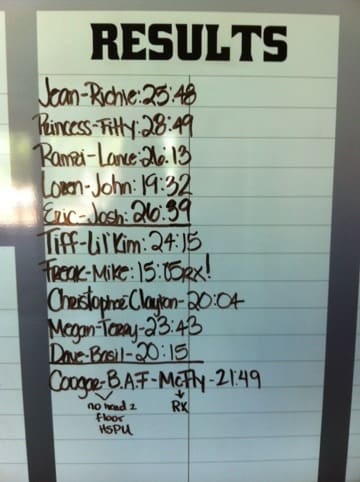 RESULTS
Jean-Richie: 25:48
Princess-Fitty: 28:49
Ramzi-Lance: 26:13
Loren-John: 19:32
Eric-Josh: 26:39
Tiff-Lil'Kim: 24:15
Freak-Mike: 15:05 RX!
Christopher Clayton-20:04
Megan-Terry-23:43
Dave-Basil-20:15
Coogar-B.A.F-McFly-21:49
no head 2 RX
floor
HSPU